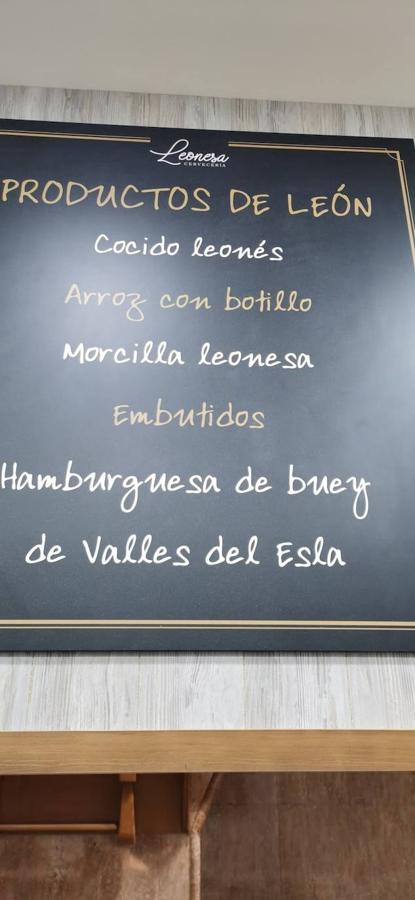 Leonesa
CERVECERÍA
PRODUCTOS DE LEÓN
Cocido leonés
Arroz con botillo
Morcilla leonesa
Embutidos
Hamburguesa de buey
de Valles del Esla